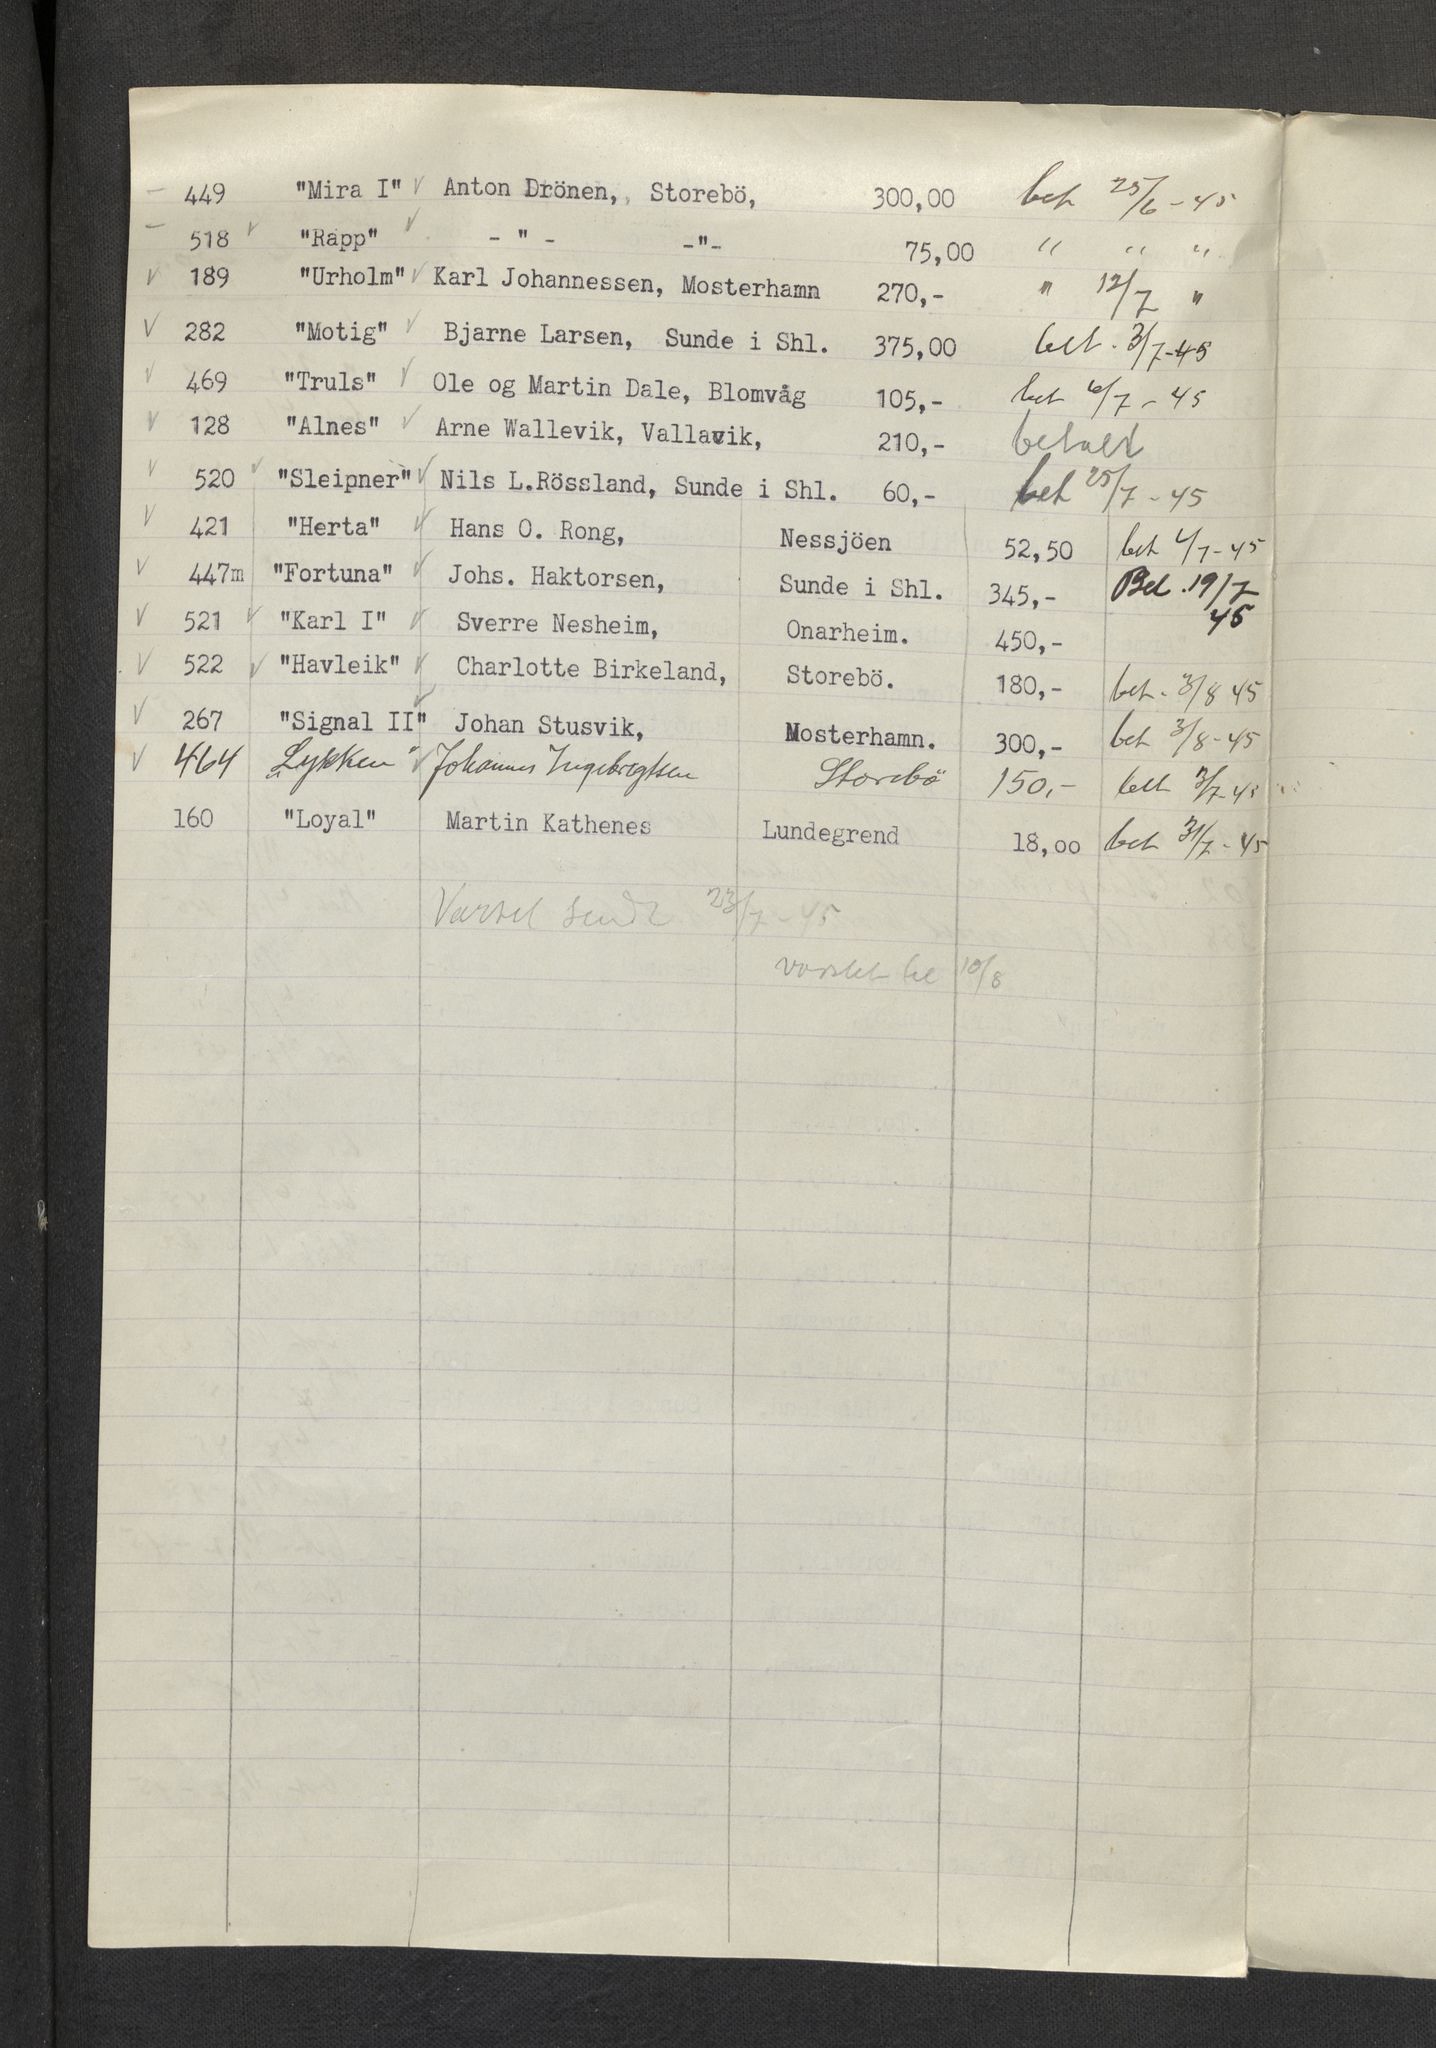 — 449 "Mira I" ✓ Anton Drönen, Storebö, 300,00 bet 25/6-45
— 518 ✓ "Rapp" ✓ - " - -"- 75,00 " " "
✓ 189 "Urholm" ✓ Karl Johannessen, Mosterhamn 270,- " 12/7 "
✓ 282 "Motig" ✓ Bjarne Larsen, Sunde i Shl. 375,00 bet. 3/7-45
✓ 469 "Truls" ✓ Ole og Martin Dale, Blomvåg 105,- bet 6/7-45
✓ 128 "Alnes" ✓ Arne Wallevik, Vallavik, 210,- betalt
✓ 520 ✓ "Sleipner" ✓ Nils L.Rössland, Sunde i Shl. 60,- bet 25/7-45
✓ 421 "Herta" ✓ Hans O. Rong, Nessjöen 52,50 bet 4/7-45
✓ 447m "Fortuna" ✓ Johs. Haktorsen, Sunde i Shl. 345,- Bet. 19/7
45
✓ 521 ✓ "Karl I" ✓ Sverre Nesheim, Onarheim. 450,-
✓ 522 ✓ "Havleik" ✓ Charlotte Birkeland, Storebö. 180,- bet. 3/8 45
✓ 267 "Signal II" ✓ Johan Stusvik, Mosterhamn. 300,- bet 3/8-45
✓ 464 "Lykken" ✓ Johannes Ingebregtsen Storebö 150,- bet 3/7-45
160 "Loyal" Martin Kathenes Lundegrend 18,00 bet 31/7-45
Varsel sendt 23/7-45
10/8